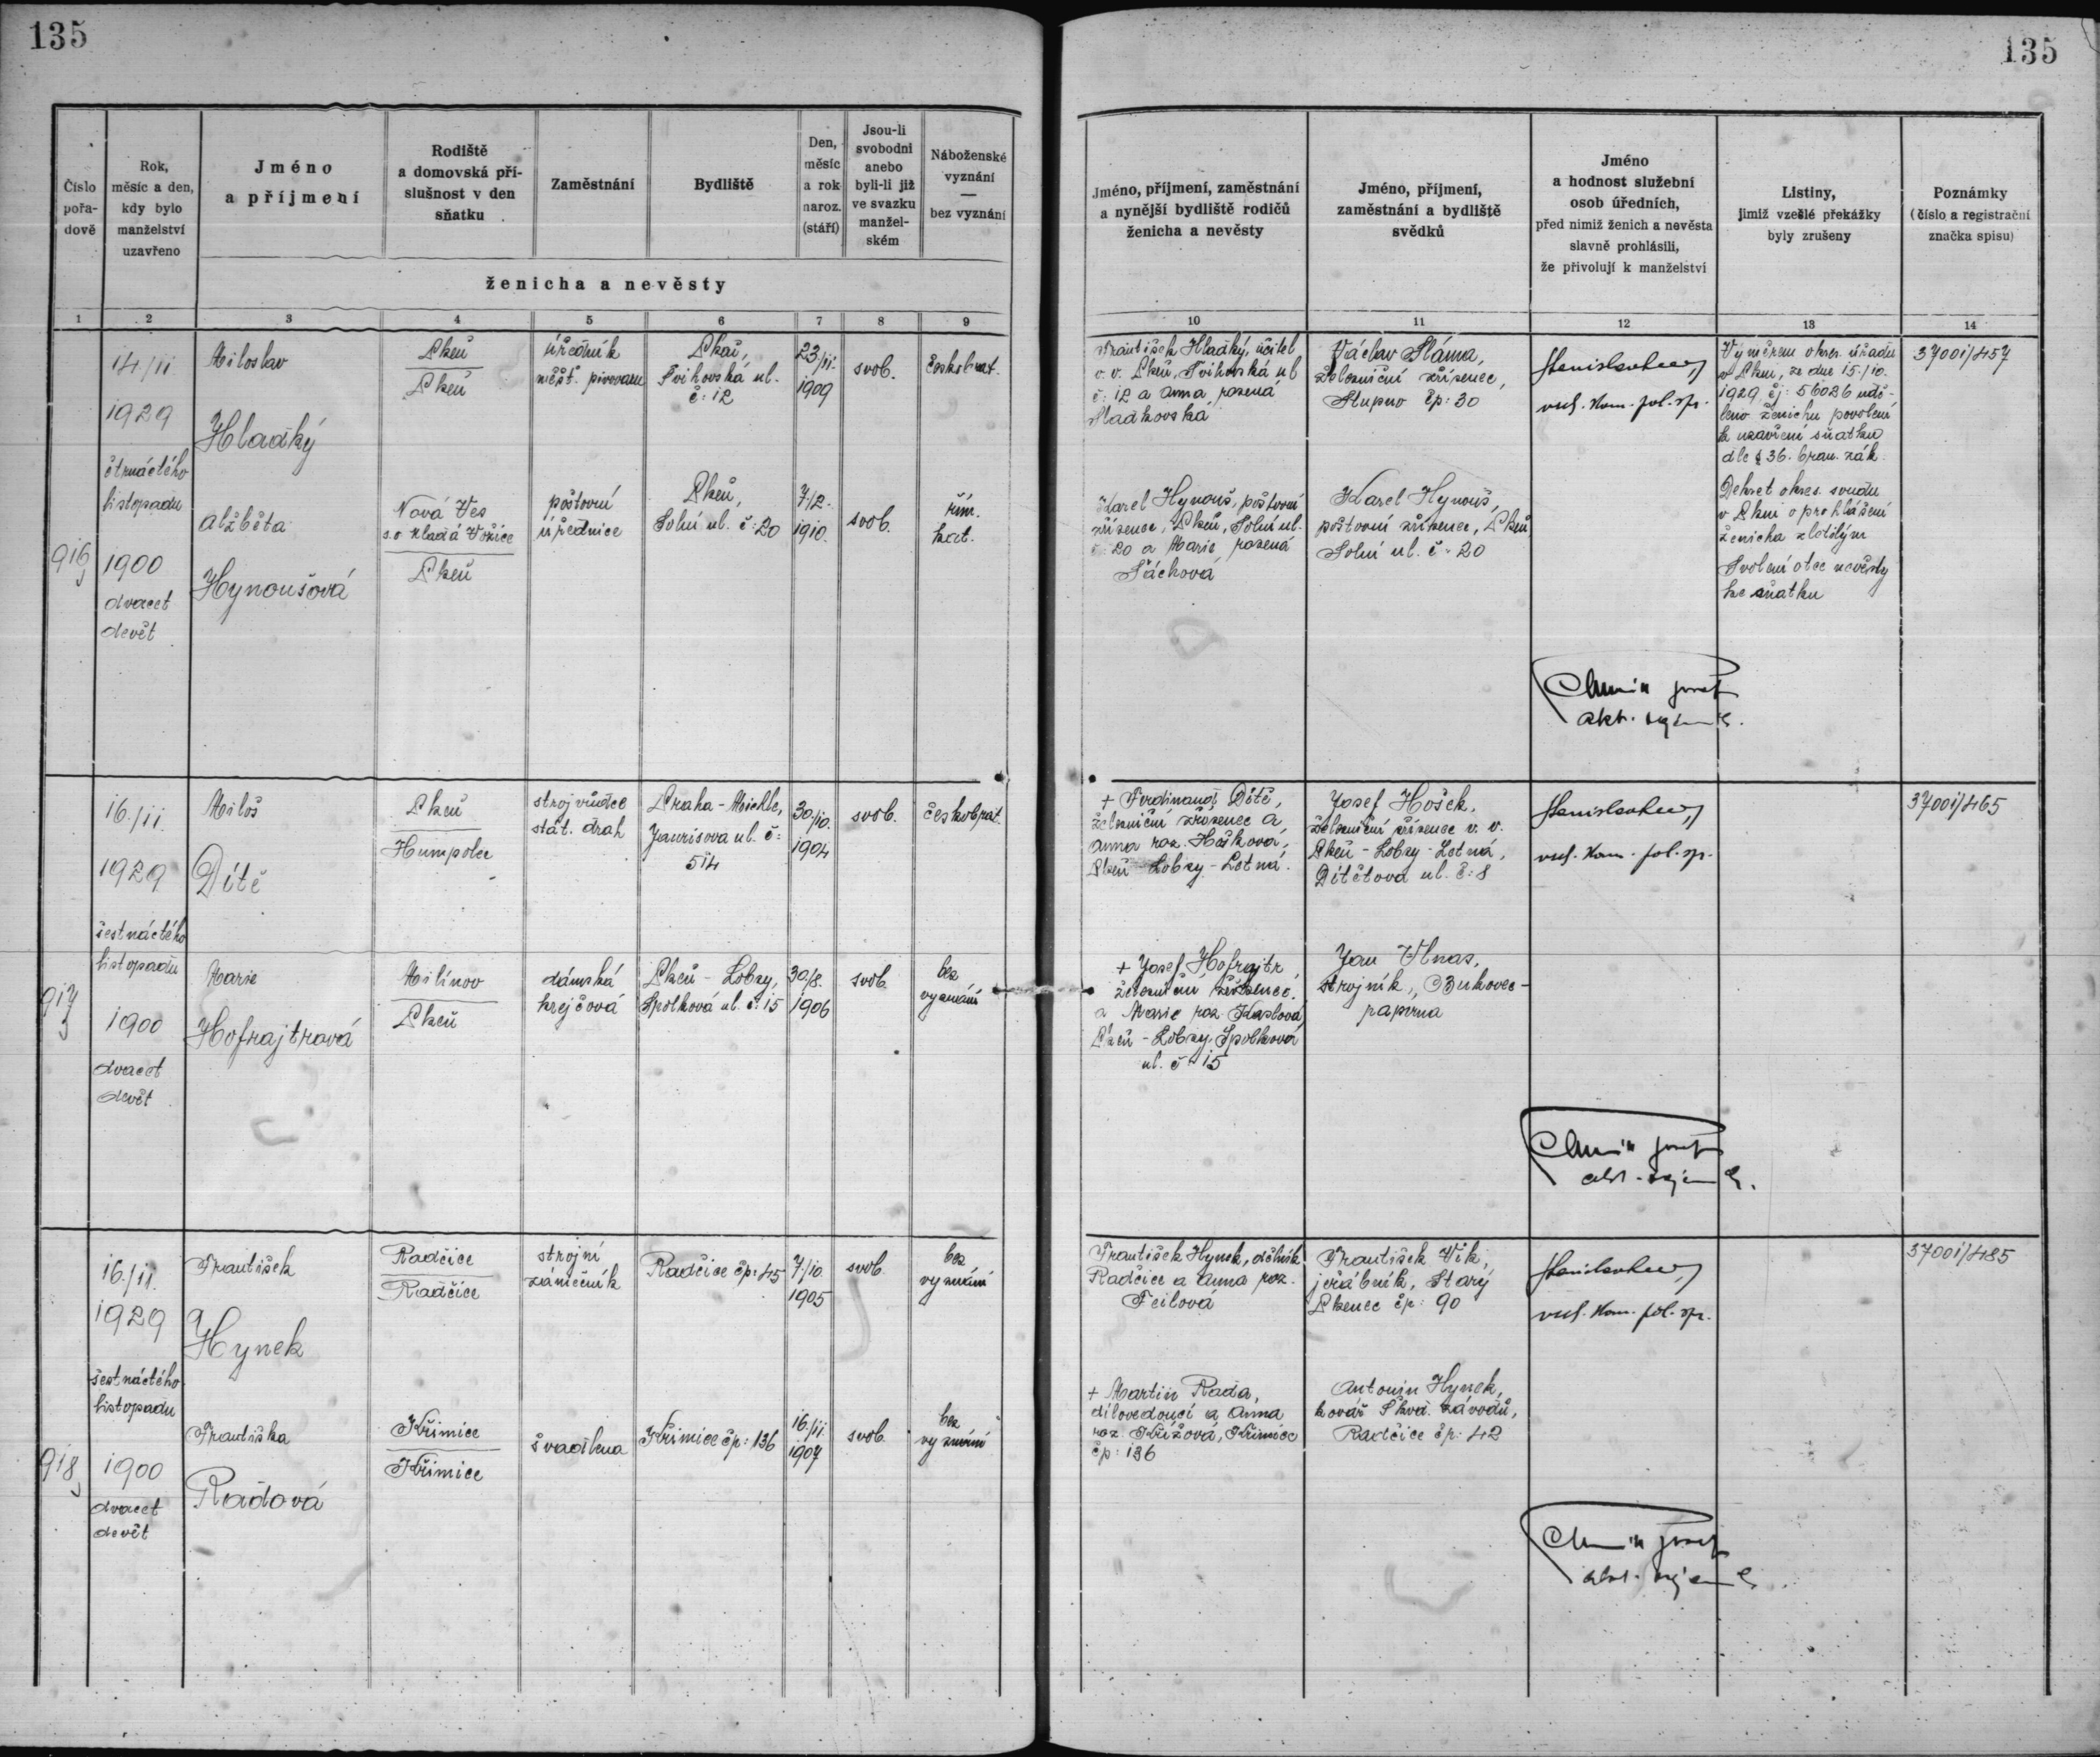 135
135
Číslo
pořa-
dově
Rok,
měsíc a den,
kdy bylo
manželství
uzavřeno
Jméno
a příjmení
Rodiště
a domovská pří-
slušnost v den
sňatku
Zaměstnání
Bydliště
Den,
měsíc
a rok
naroz.
(stáří)
Jsou-li
svobodni
anebo
byli-li již
ve svazku
manžel-
ském
Náboženské
vyznání
—
bez vyznání
ženicha a nevěsty
Jméno, příjmení, zaměstnání
a nynější bydliště rodičů
ženicha a nevěsty
Jméno, příjmení,
zaměstnání a bydliště
svědků
Jméno
a hodnost služební
osob úředních,
před nimiž ženich a nevěsta
slavně prohlásili,
že přivolují k manželství
Listiny,
jimiž vzešlé překážky
byly zrušeny
Poznámky
(číslo a registrační
značka spisu)
1 2 3 4 5 6 7 8 9 10 11 12 13 14
916
14./11
1929
čtrnáctého
listopadu
1900
dvacet
devět
Miloslav
Hladký
Plzeň
Plzeň
úředník
měšť. pivovaru
Plzeň,
Švihovská ul.
č: 12
23/11.
1909
svob.
českobrat.
František Hladký, učitel
v. v. Plzeň, Švihovská ul
č: 12 a Anna rozená
Sladkovská
Václav Sláma,
železniční zřízenec,
Stupno čp: 30
vrch. kom. pol. spr.
Výměrem okres. úřadu
v Plzni, ze dne 15./10.
1929 čj: 56026 udě-
leno ženichu povolení
k uzavření sňatku
dle § 36. bran. zák.
37001/457
Alžběta
Hynoušová
Nová Ves
s.o Mladá Vožice
Plzeň
poštovní
úřednice
Plzeň,
Solní ul. č: 20
7./2.
1910.
svob.
řím.
kat.
Karel Hynouš, poštovní
zřízenec, Plzeň, Solní ul.
č: 20 a Marie rozená
Šáchová
Karel Hynouš,
poštovní zřízenec, Plzeň
Solní ul. č: 20
Dekret okres. soudu
v Plzni o prohlášení
ženicha zletilým
Svolení otce nevěsty
ke sňatku
917
16./11.
1929
šestnáctého
listopadu
1900
dvacet
devět
Miloš
Dítě
Plzeň
Humpolec
strojvůdce
stát. drah
Praha - Michle,
Jaurisova ul. č:
514
30/10.
1904
svob.
českobrat.
+ Ferdinand Dítě,
železniční zřízenec a
Anna roz. Hošková,
Plzeň - Lobzy - Letná.
Josef Hošek,
železniční zřízenec v. v.
Plzeň - Lobzy - Letná,
Dítětova ul. č: 8
vrch. kom. pol. spr.
37001/465
Marie
Hofrajtrová
Milínov
Plzeň
dámská
krejčová
Plzeň - Lobzy,
Spolková ul. č: 15
30/8.
1906
svob.
bez
vyznání
+ Josef Hofrajtr
železniční zřízenec
a Marie roz. Kaslová
Plzeň - Lobzy, Spolková
ul. č 15
Jan Vlnas,
strojník, Bukovec -
papírna
918
16./11.
1929
šestnáctého
listopadu
1900
dvacet
devět
František
Hynek
Radčice
Radčice
strojní
zámečník
Radčice čp: 45
7/10.
1905
svob.
bez
vyznání
František Hynek, dělník
Radčice a Anna roz.
Feilová
František Vik,
jeřábník, Starý
Plzenec čp: 90
vrch. kom. pol. spr.
37001/485
Františka
Radová
Křimice
Křimice
švadlena
Křimice čp: 136
16./11.
1907
svob.
bez
vyznání
+ Martin Rada,
dílovedoucí a Anna
roz. Křížová, Křimice
čp: 136
Antonín Hynek,
kovář Škod. závodů,
Radčice čp: 42